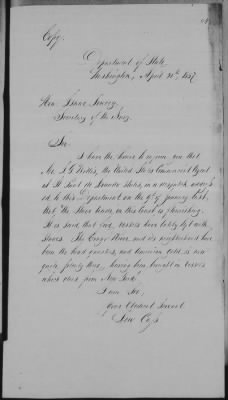 Copy.
Department of State,
Washington, April 21st, 1857
Hon. Isaac Toucey,
Secretary of the Navy.
Sir,
I have the honor to inform you that
Mr. J. G. Willis, the United States Commercial Agent
at St. Paul de Loanda states, in a despatch address-
ed to this Department on the 9th of January last,
that "the Slave trade, on this Coast is flourishing.
It is said that five vessels have lately left with
Slaves. The Congo River, and its neighborhood have
been the head quarters, and American Gold is now
quite plenty there, having been brought in vessels
which clear from New York."
I am Sir,
Your Obedient Servant
Lew Cass